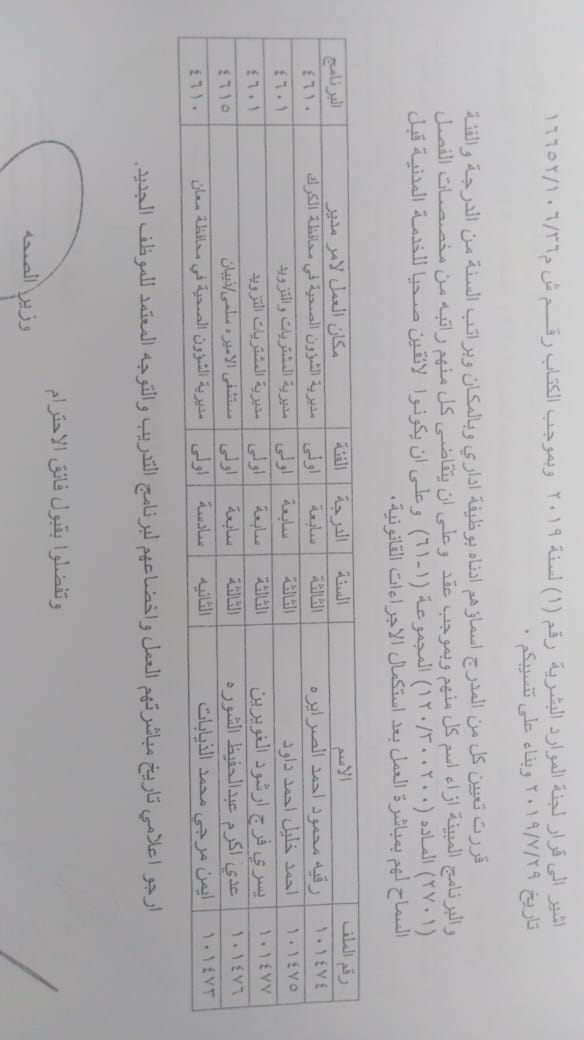 اشير الى قرار لجنة الموارد البشرية رقم (١) لسنة ٢٠١٩ وبموجب الكتاب رقم ش م/٣٦/١٠٦/١٦٦٥٢
تاريخ ٢٠١٩/٧/٢٩ وبناء على تنسيبكم .
قررت تعيين كل من المدرج اسماؤهم ادناه بوظيفة اداري وبالمكان وبراتب السنة من الدرجة والفئة
والبرنامج المبينة ازاء اسم كل منهم وبموجب عقد وعلى ان يتقاضى كل منهم راتبه من مخصصات الفصل
(٢٧٠١) الماده (١٢٠/٣٠٠٢٠٠) المجموعة (١-٦١) وعلى ان يكونوا لائقين صحيا للخدمة المدنية قبل
السماح لهم بمباشرة العمل بعد استكمال الاجراءات القانونية.
رقم الملف الاسم السنة الدرجة الفئة مكان العمل لامر مدير البرنامج
١٠١٤٧٤ رقيه محمود احمد الصرايره الثالثة سابعة اولى مديرية الشؤون الصحية في محافظة الكرك ٤٦١٠
١٠١٤٧٥ احمد خليل احمد داود الثالثة سابعة اولى مديرية المشتريات والتزويد ٤٦٠١
١٠١٤٧٧ يسري فرج ارشود الغويرين الثالثة سابعة اولى مديرية المشتريات التزويد ٤٦٠١
١٠١٤٧٦ عدي اكرم عبدالحفيظ الشوره الثالثة سابعة اولى مستشفى الاميره سلمى/ذيبان ٤٦١٥
١٠١٤٧٣ ايمن مرجي محمد الذيابات الثانيه سادسة اولى مديرية الشؤون الصحية في محافظة معان ٤٦١٠
ارجو اعلامي تاريخ مباشرتهم العمل واخضاعهم لبرنامج التدريب والتوجه المعتمد للموظف الجديد.
وتفضلوا بقبول فائق الاحترام
وزير الصحه